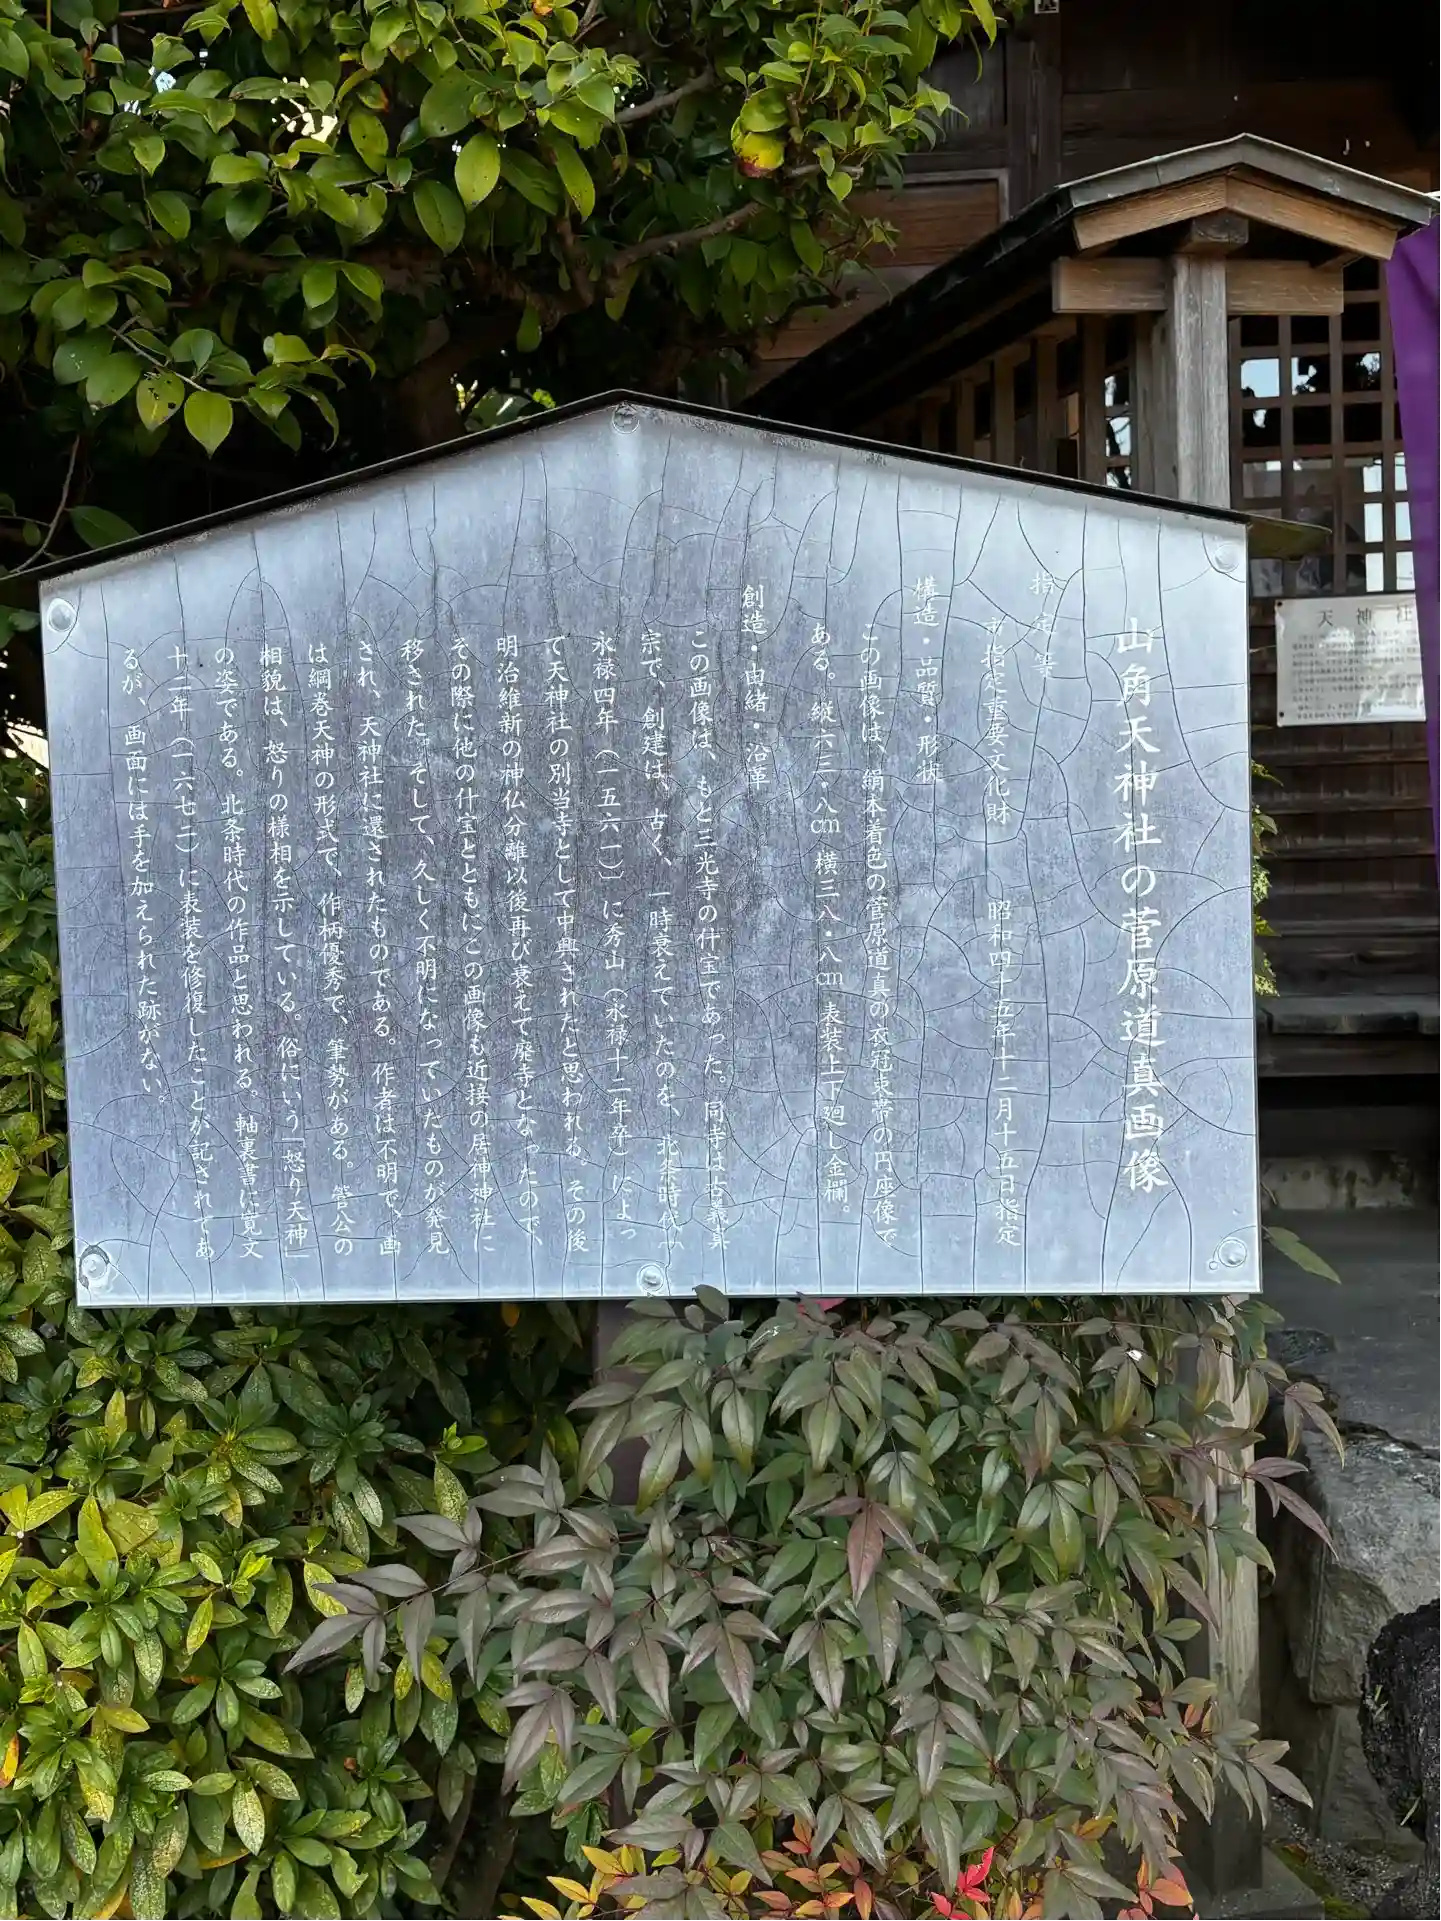 山角天神社の菅原道真画像
指定等
市指定重要文化財　昭和四十五年十二月十五日指定
構造・品質・形状
この画像は、絹本着色の菅原道真の衣冠束帯の円座像で
ある。縦六三・八㎝ 横三八・八㎝ 表装上下廻し金襴。
創造・由緒・沿革
この画像は、もと三光寺の什宝であった。同寺は古義真
宗で、創建は、古く、一時衰えていたのを、北条時代（
永禄四年（一五六一）に秀山（永禄十二年卒）によっ
て天神社の別当寺として中興されたと思われる。その後
明治維新の神仏分離以後再び衰えて廃寺となったので、
その際に他の什宝とともにこの画像も近接の居神神社に
移された。そして、久しく不明になっていたものが発見
され、天神社に還されたものである。作者は不明で、画
は綱巻天神の形式で、作柄優秀で、筆勢がある。菅公の
相貌は、怒りの様相を示している。俗にいう「怒り天神」
の姿である。北条時代の作品と思われる。軸裏書に寛文
十二年（一六七二）に表装を修復したことが記されてあ
るが、画面には手を加えられた跡がない。
天神社